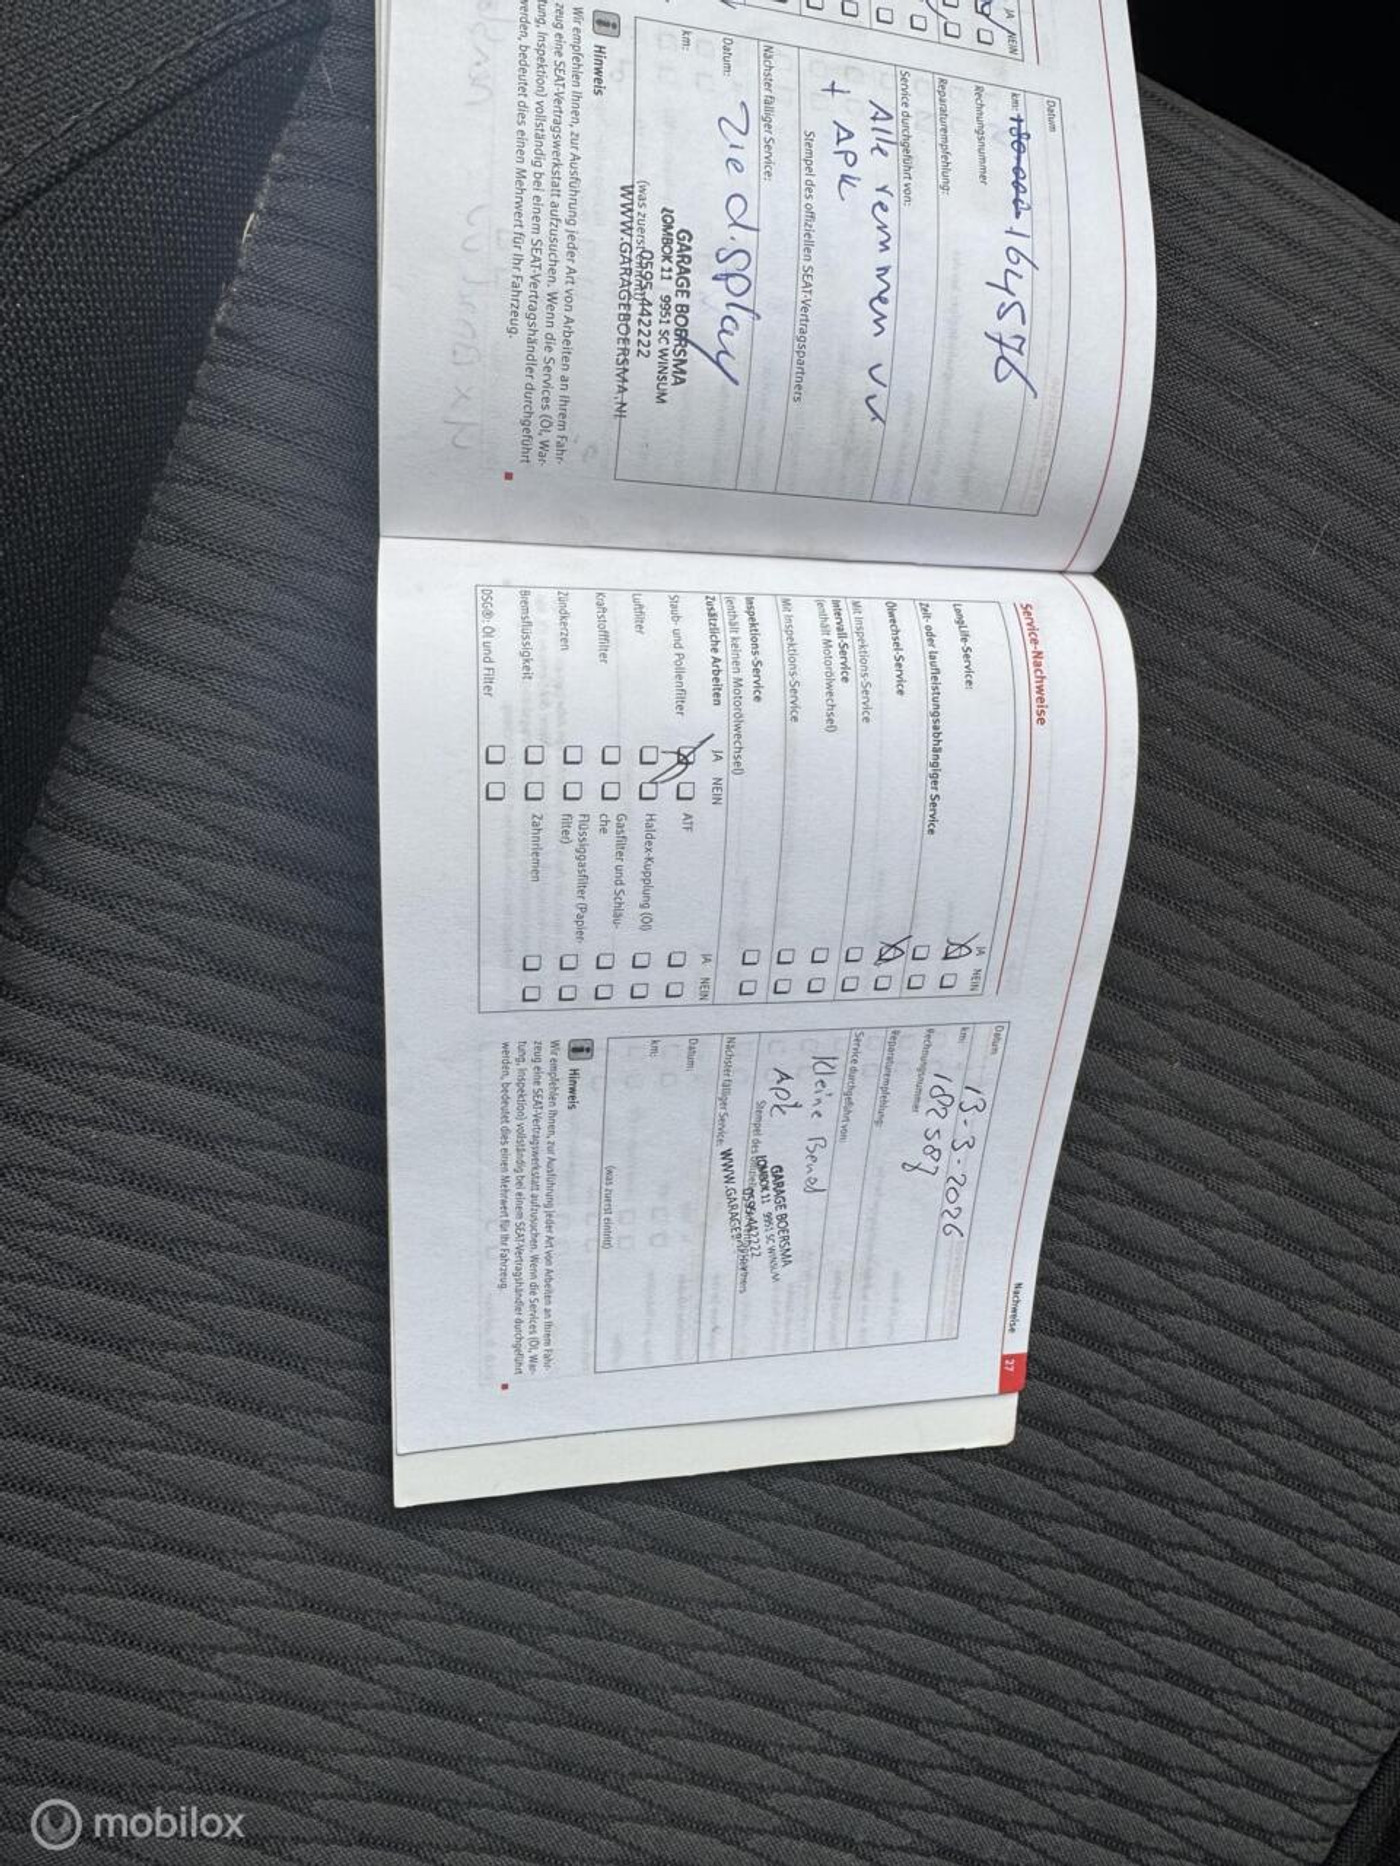 JA NEIN
Datum
km: 180.000 164576
Rechnungsnummer
Reparaturempfehlung:
Service durchgeführt von:
Alle remmen vv
+ APK
Stempel des offiziellen SEAT-Vertragspartners
Nächster fälliger Service:
Datum: Zie display
km:
GARAGE BOERSMA
LOMBOK 11 9951 SC WINSUM
(was zuerst eintritt)
0595-442222
WWW.GARAGEBOERSMA.NL
Hinweis
Wir empfehlen Ihnen, zur Ausführung jeder Art von Arbeiten an Ihrem Fahr-
zeug eine SEAT-Vertragswerkstatt aufzusuchen. Wenn die Services (Öl, War-
tung, Inspektion) vollständig bei einem SEAT-Vertragshändler durchgeführt
werden, bedeutet dies einen Mehrwert für Ihr Fahrzeug.
Service-Nachweise
JA NEIN
LongLife-Service:
Zeit- oder laufleistungsabhängiger Service
Ölwechsel-Service
Mit Inspektions-Service
Intervall-Service
(enthält Motorölwechsel)
Mit Inspektions-Service
Inspektions-Service
(enthält keinen Motorölwechsel)
Zusätzliche Arbeiten JA NEIN JA NEIN
Staub- und Pollenfilter ATF
Luftfilter Haldex-Kupplung (Öl)
Kraftstofffilter Gasfilter und Schläu-
che
Zündkerzen Flüssiggasfilter (Papier-
filter)
Bremsflüssigkeit Zahnriemen
DSG®: Öl und Filter
Nachweise 27
Datum 13-3-2026
km: 182587
Rechnungsnummer
Reparaturempfehlung:
Service durchgeführt von:
Kleine Beurt
APK
GARAGE BOERSMA
LOMBOK 11 9951 SC WINSUM
Stempel des
0595-442222
Nächster fälliger Service: WWW.GARAGEBO
Datum:
km:
(was zuerst eintritt)
Hinweis
Wir empfehlen Ihnen, zur Ausführung jeder Art von Arbeiten an Ihrem Fahr-
zeug eine SEAT-Vertragswerkstatt aufzusuchen. Wenn die Services (Öl, War-
tung, Inspektion) vollständig bei einem SEAT-Vertragshändler durchgeführt
werden, bedeutet dies einen Mehrwert für Ihr Fahrzeug.
mobilox